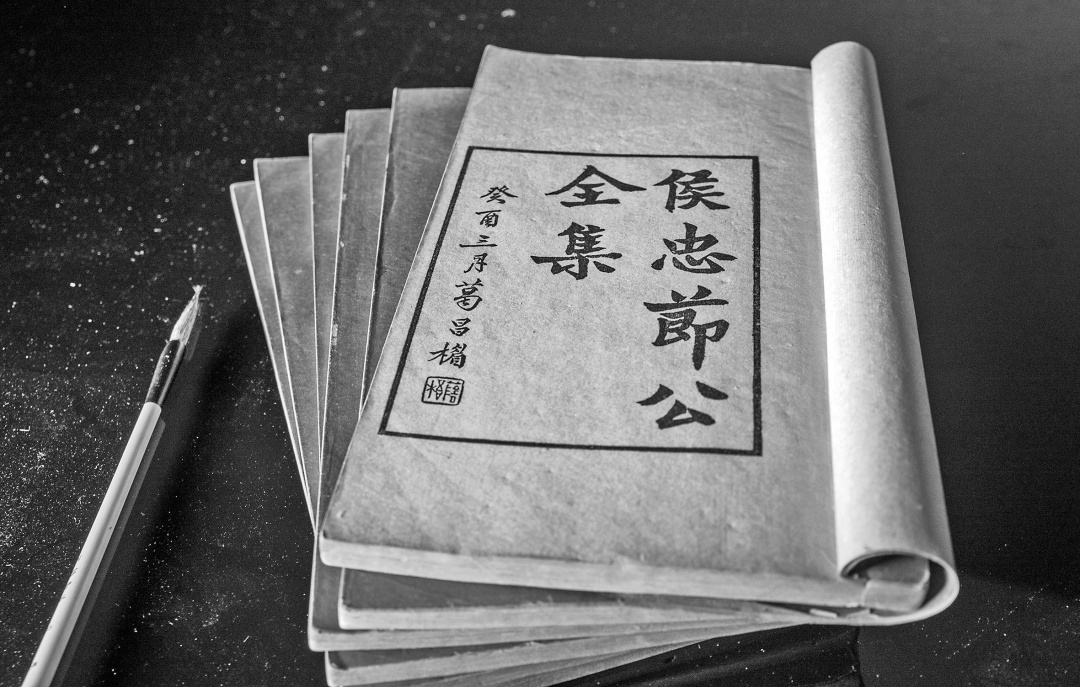 侯忠節公
全集
癸酉三月葛昌楣